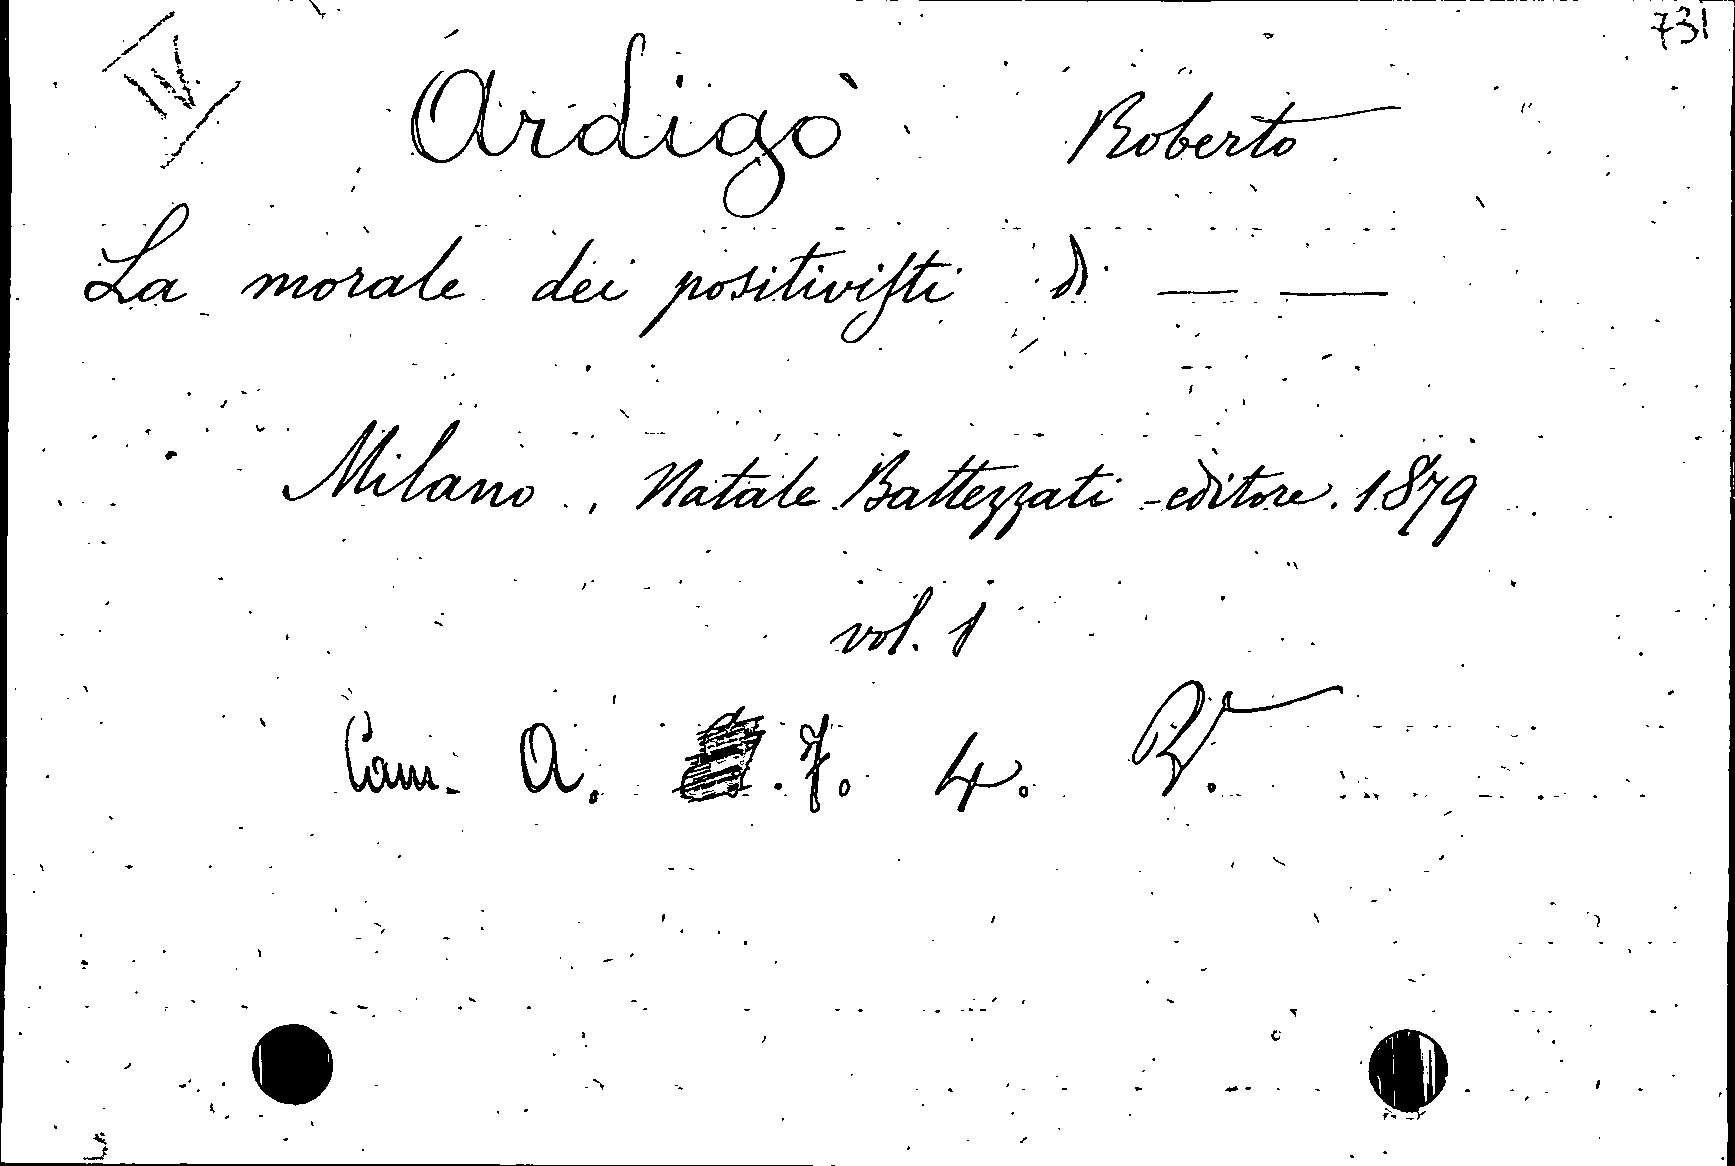 IV
731
Ardigò Roberto
La morale dei positivisti di — —
Milano, Natale Battezzati - editore. 1879
vol. 1
Cam. A. 7. 4.